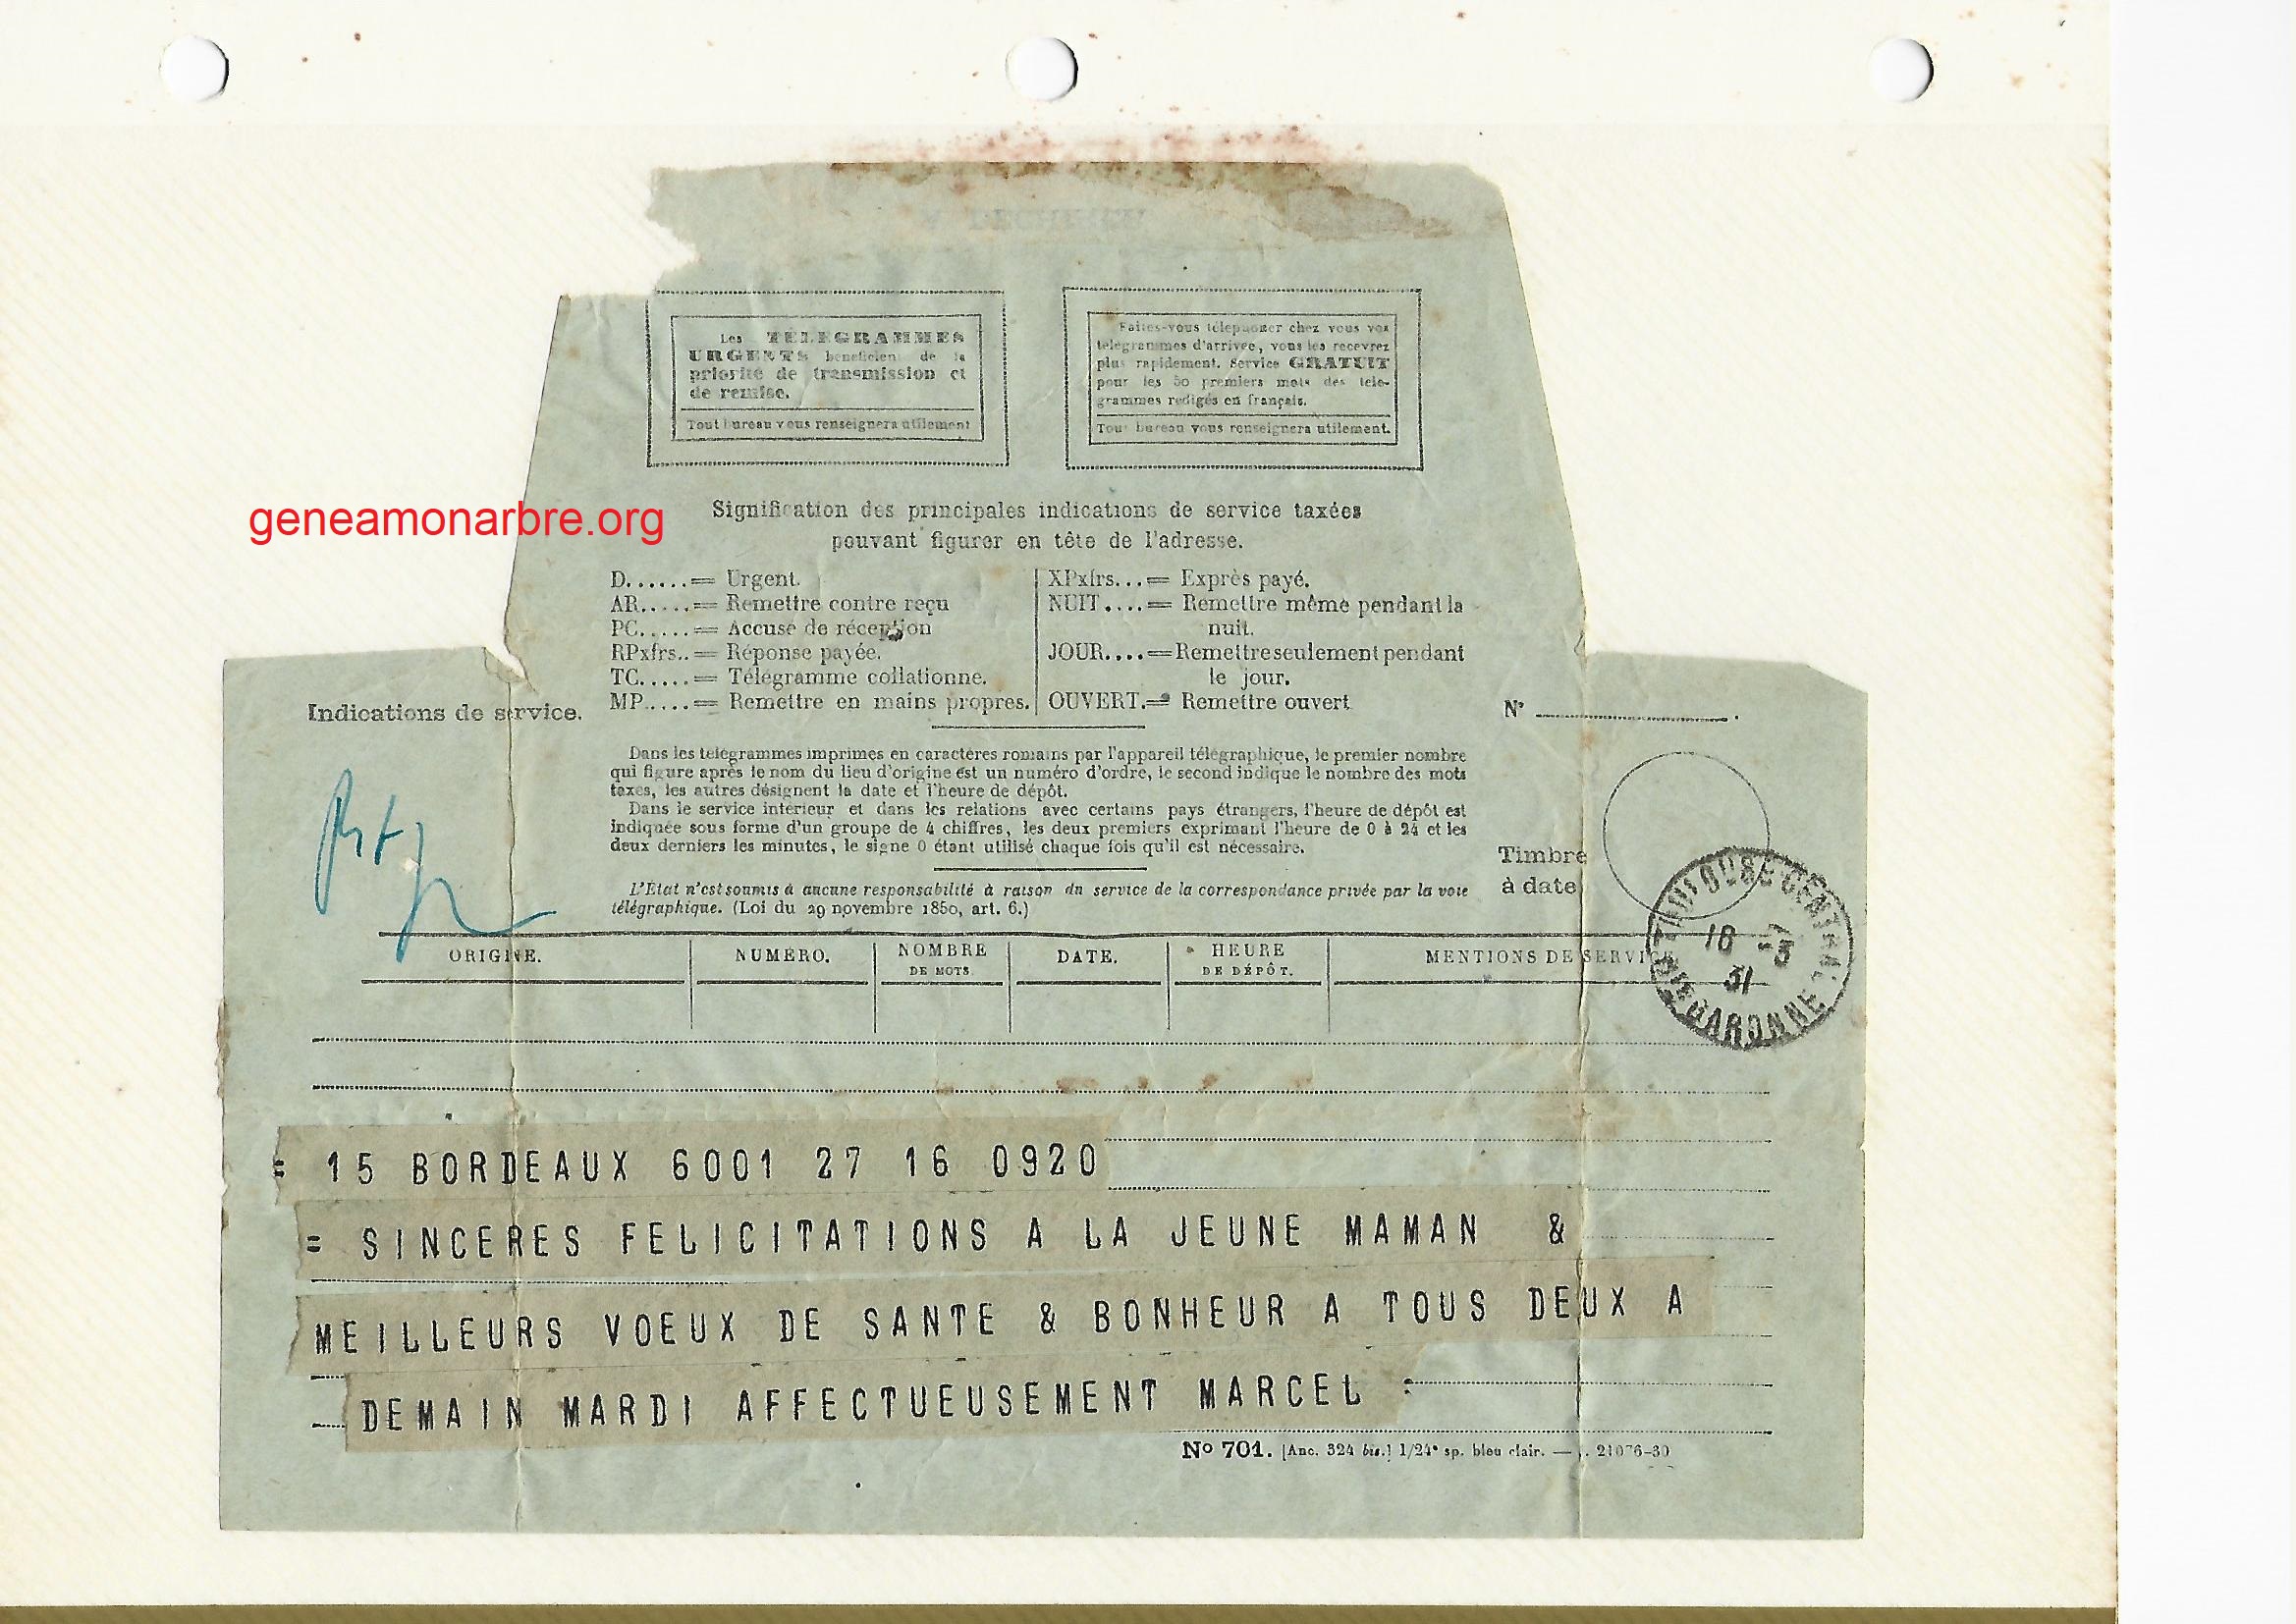 Les TELEGRAMMES
URGENTS beneficient de la
priorité de transmission et
de remise.
Tout bureau vous renseignera utilement
Faites-vous telephoner chez vous vos
telegrammes d'arrivee, vous les recevrez
plus rapidement. Service GRATUIT
pour les 50 premiers mots des tele-
grammes redigés en français.
Tout bureau vous renseignera utilement.
geneamonarbre.org
Signification des principales indications de service taxées
pouvant figurer en tête de l'adresse.
D......= Urgent.
AR.....= Remettre contre reçu
PC.....= Accusé de réception
RPxfrs..= Réponse payée.
TC.....= Télégramme collationne.
MP.....= Remettre en mains propres.
XPxfrs...= Exprès payé.
NUIT....= Remettre même pendant la
nuit.
JOUR....= Remettre seulement pendant
le jour.
OUVERT.= Remettre ouvert
Indications de service.
N°
Dans les telegrammes imprimes en caractères romains par l'appareil télégraphique, le premier nombre
qui figure après le nom du lieu d'origine est un numéro d'ordre, le second indique le nombre des mots
taxes, les autres désignent la date et l'heure de dépôt.
Dans le service interieur et dans les relations avec certains pays étrangers, l'heure de dépôt est
indiquée sous forme d'un groupe de 4 chiffres, les deux premiers exprimant l'heure de 0 à 24 et les
deux derniers les minutes, le signe 0 étant utilisé chaque fois qu'il est nécessaire.
L'État n'est soumis à aucune responsabilité à raison du service de la correspondance privée par la voie
télégraphique. (Loi du 29 novembre 1850, art. 6.)
Timbre
à date
TOULOUSE CENTRAL
16 -3
31
HTE GARONNE
ORIGINE. NUMÉRO. NOMBRE DE MOTS. DATE. HEURE DE DÉPÔT. MENTIONS DE SERVICE
= 15 BORDEAUX 6001 27 16 0920
= SINCERES FELICITATIONS A LA JEUNE MAMAN &
MEILLEURS VOEUX DE SANTE & BONHEUR A TOUS DEUX A
DEMAIN MARDI AFFECTUEUSEMENT MARCEL =
N° 701. [Anc. 324 bis.] 1/24e sp. bleu clair. — 21076-30